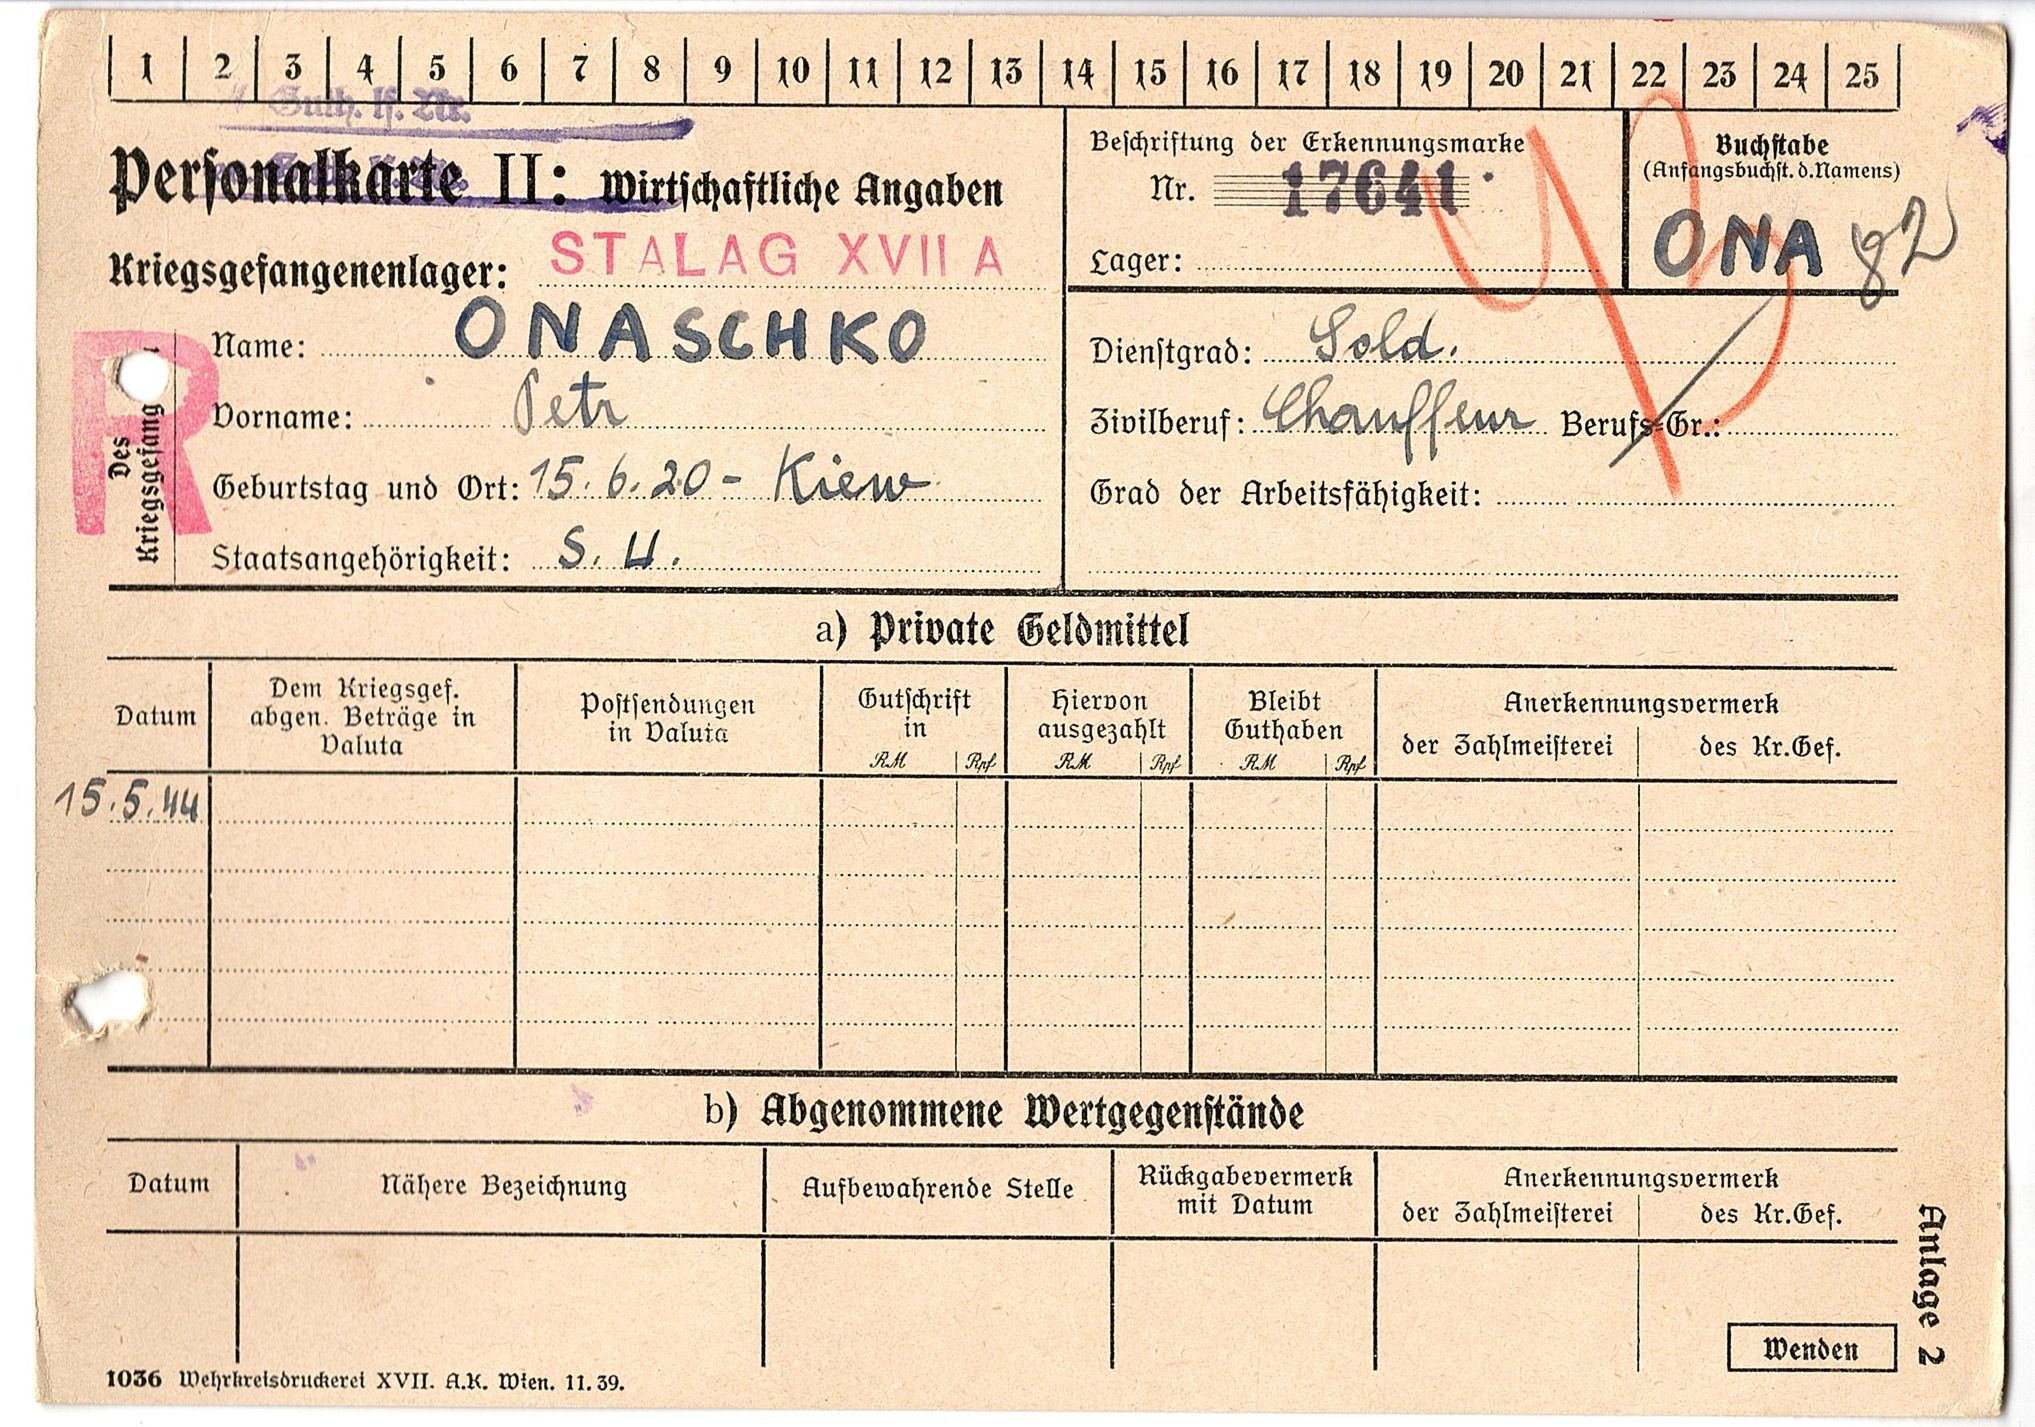 1 2 3 4 5 6 7 8 9 10 11 12 13 14 15 16 17 18 19 20 21 22 23 24 25
Guth. lf. Nr.
Personalkarte II: Wirtschaftliche Angaben
Kriegsgefangenenlager: STALAG XVII A
Des Kriegsgefang
R
Name: ONASCHKO
Vorname: Petr
Geburtstag und Ort: 15.6.20 - Kiew
Staatsangehörigkeit: S. U.
Beschriftung der Erkennungsmarke
Nr. 17641
Lager:
Buchstabe
(Anfangsbuchst. d. Namens)
ONA 82
Dienstgrad: Sold.
Zivilberuf: Chauffeur Berufs-Gr.:
Grad der Arbeitsfähigkeit:
a) Private Geldmittel
Datum
Dem Kriegsgef.
abgen. Beträge in
Valuta
Postsendungen
in Valuta
Gutschrift
in
RM Rpf
Hiervon
ausgezahlt
RM Rpf
Bleibt
Guthaben
RM Rpf
Anerkennungsvermerk
der Zahlmeisterei des Kr.Gef.
15.5.44
b) Abgenommene Wertgegenstände
Datum
Nähere Bezeichnung
Aufbewahrende Stelle
Rückgabevermerk
mit Datum
Anerkennungsvermerk
der Zahlmeisterei des Kr.Gef.
Wenden
Anlage 2
1036 Wehrkreisdruckerei XVII. A.K. Wien. 11. 39.